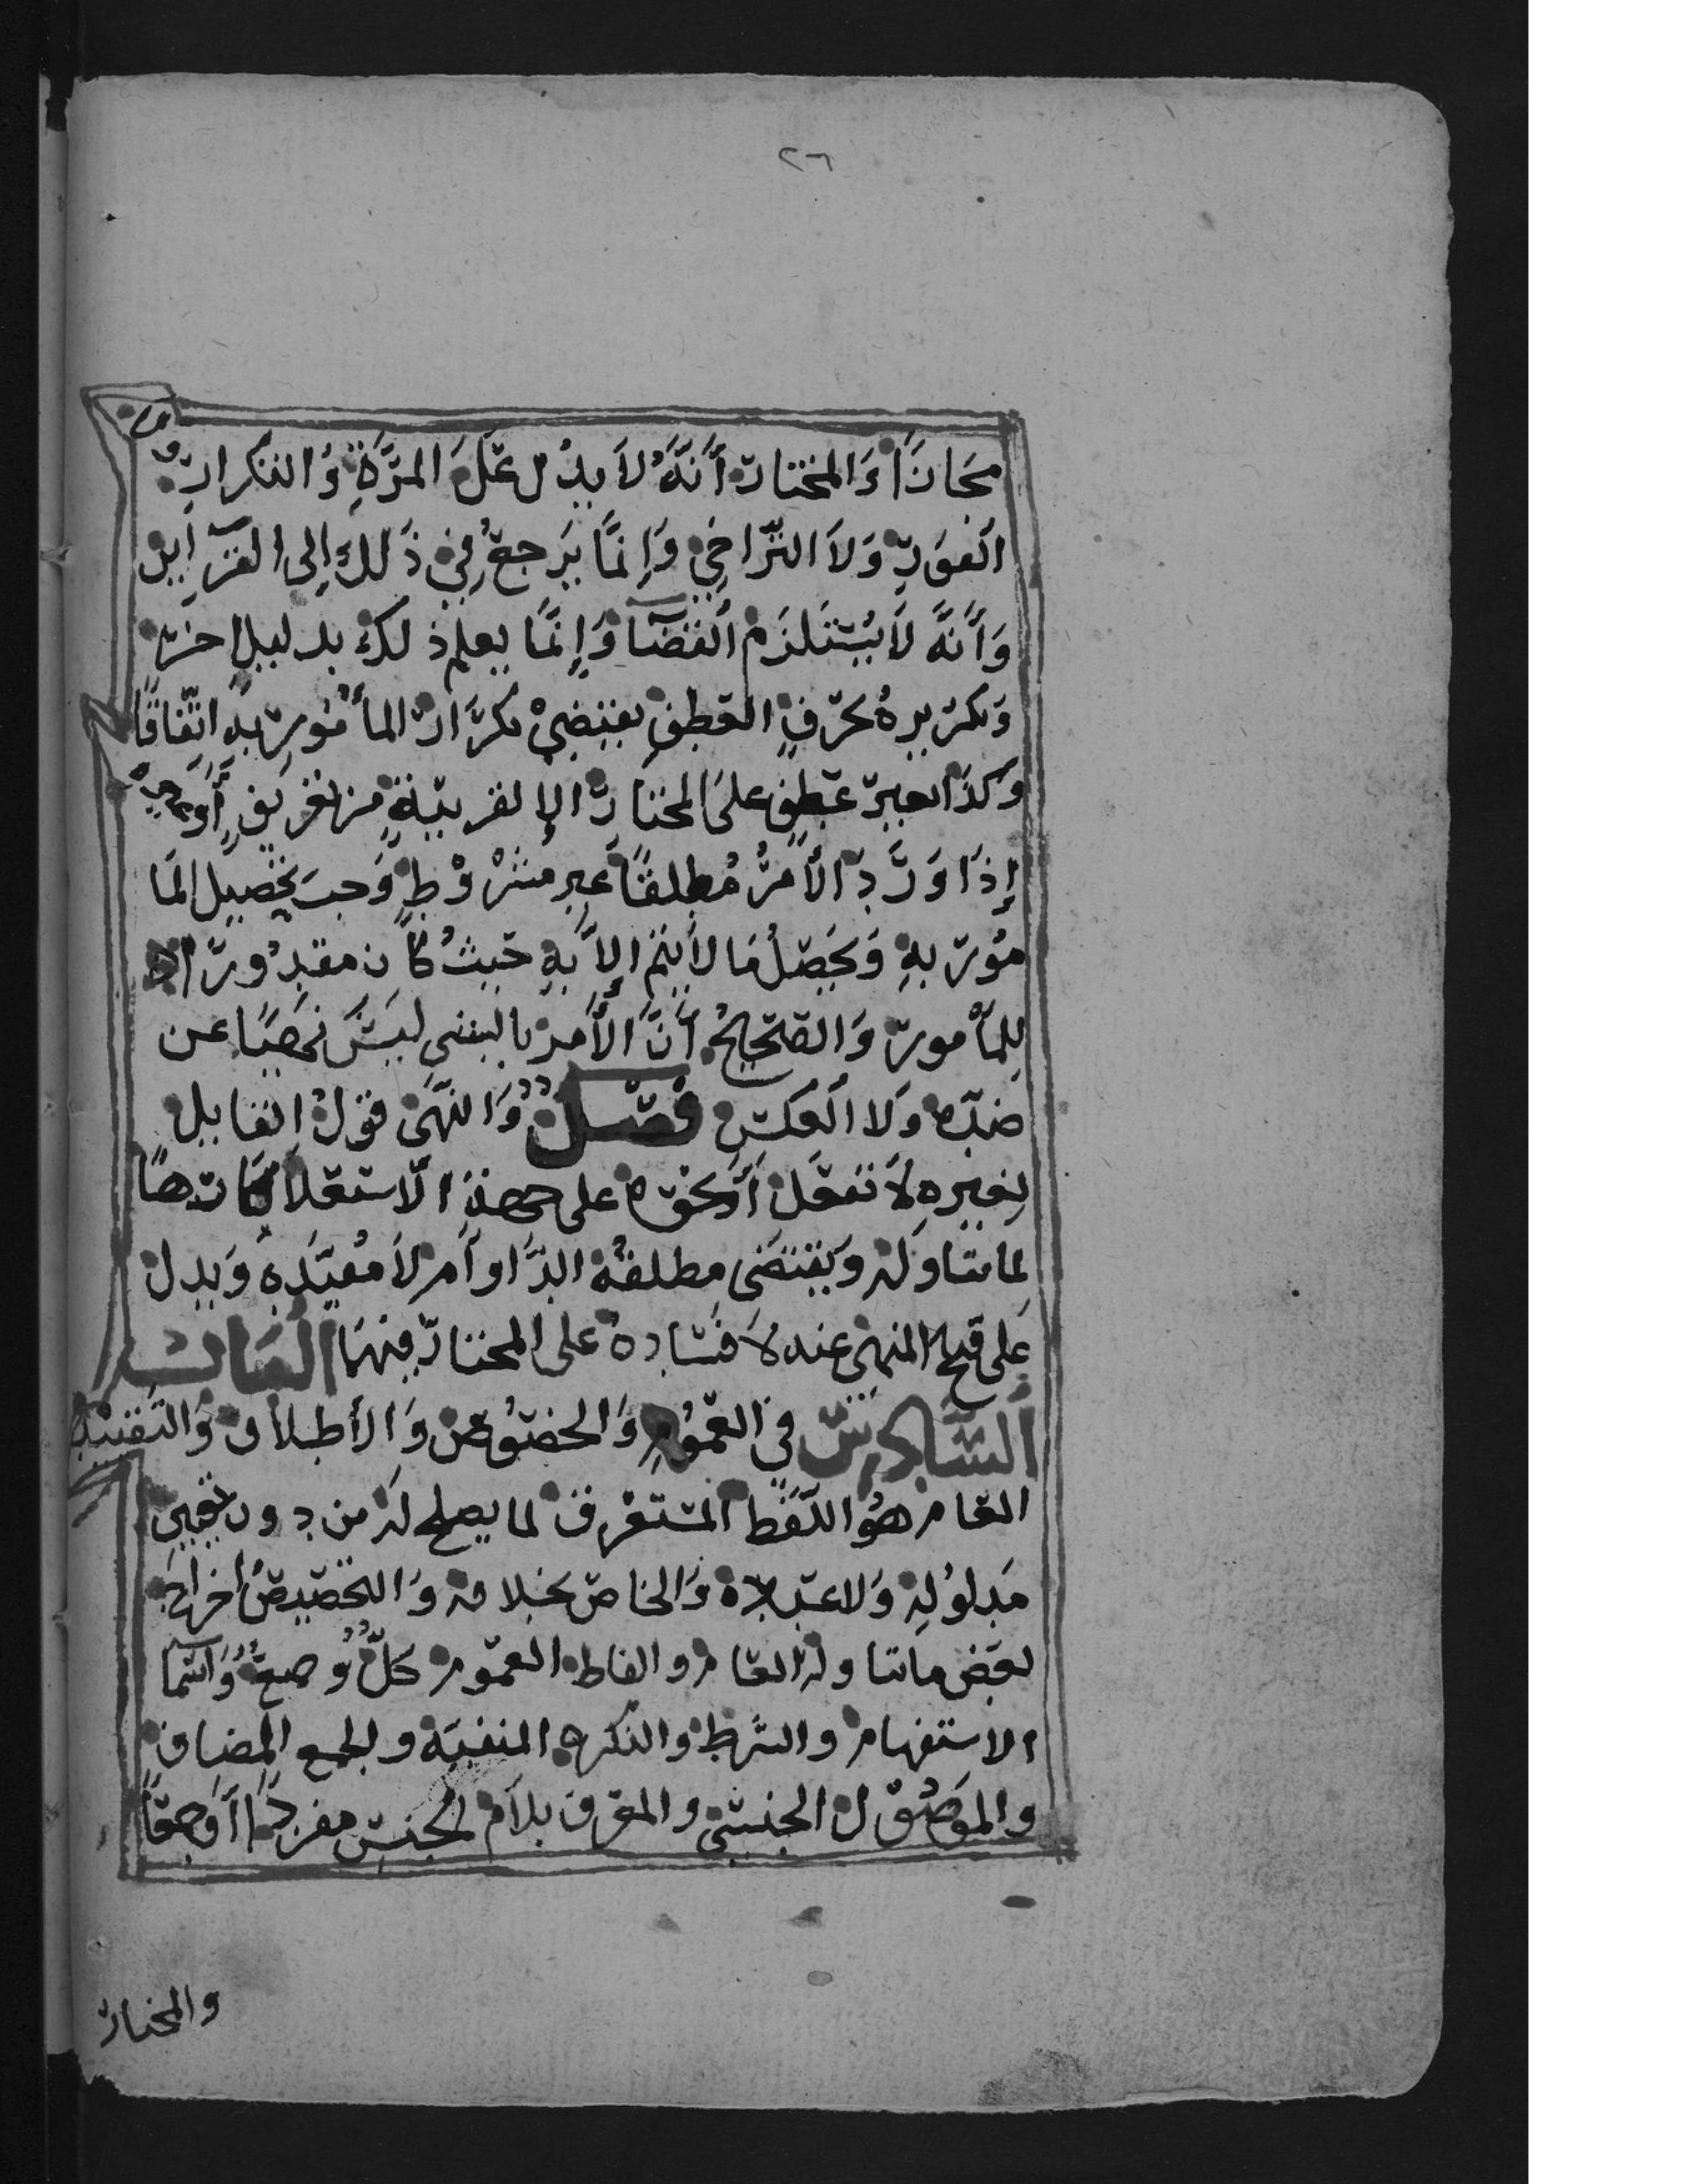 ٢٦
مجازًا وَالمختار أَنَّهُ لاَ يدُل عَلَى المرَّةِ وَالتكرار ولا
الفَورِ وَلاَ التّراخي وَإِنمَّا يَرجعُ في ذَلك إِلى القرآين
وَأَنَّهُ لاَ يَسْتَلزَم القضآ وَإِنمَّا يعلم ذلك بدليل اخر
وَتكريره بحرفِ العطفِ يقتضي تكرَّار المأمُور به اتّفاقًا
وَكذا بغير عَطفٍ على المختار الا لقرينةٍ من تعريفٍ أو غيره
إِذَا وَرَدَ الأَمرُ مُطلقًا غير مشرُوطٍ وَجبَ تحصيل المَا
مُور بهِ وَتحصّلُ مَا لا يتم إِلاَّ بهِ حَيثُ كَان مقدُورًا
لِلمأْمور وَالصّحيحُ أَنَّ الأَمر بالشي ليسَ نهيًا عن
ضدّه وَلا العَكسِ فصل وَالنّهَى قولُ القايل
لِغيره لاَ تفعَل أَو نحوه على جهة الاستعلآ كارهًا
لما تناوله وَيقتضى مطلقُهُ الدَّوآم لاَ مُقيَّده وَيدل
عَلى قبح المنهى عنه لا فَسَاده على المختار فيهمَا البَاب
السَّادس في العمُومِ وَالخصُوصِ وَالأَطلاق وَالتقييد
العام هُوَ اللّفظ المستغرق لما يصلح له من دون تعيين
مَدلولهِ وَلا عَدده وَالخاص بخلافه وَالتخصيصُ اخراج
بعَض ما تناوله العام والفاظ العموم كلّ وجميعُ وَاسمآ
الاستفهام والشرط والنكره المنفيَّة والجمع المضاف
والموَصُول الجنسّي والمعرف بلاَم الجنسِ مفردًا أَو جمعًا
والمختار